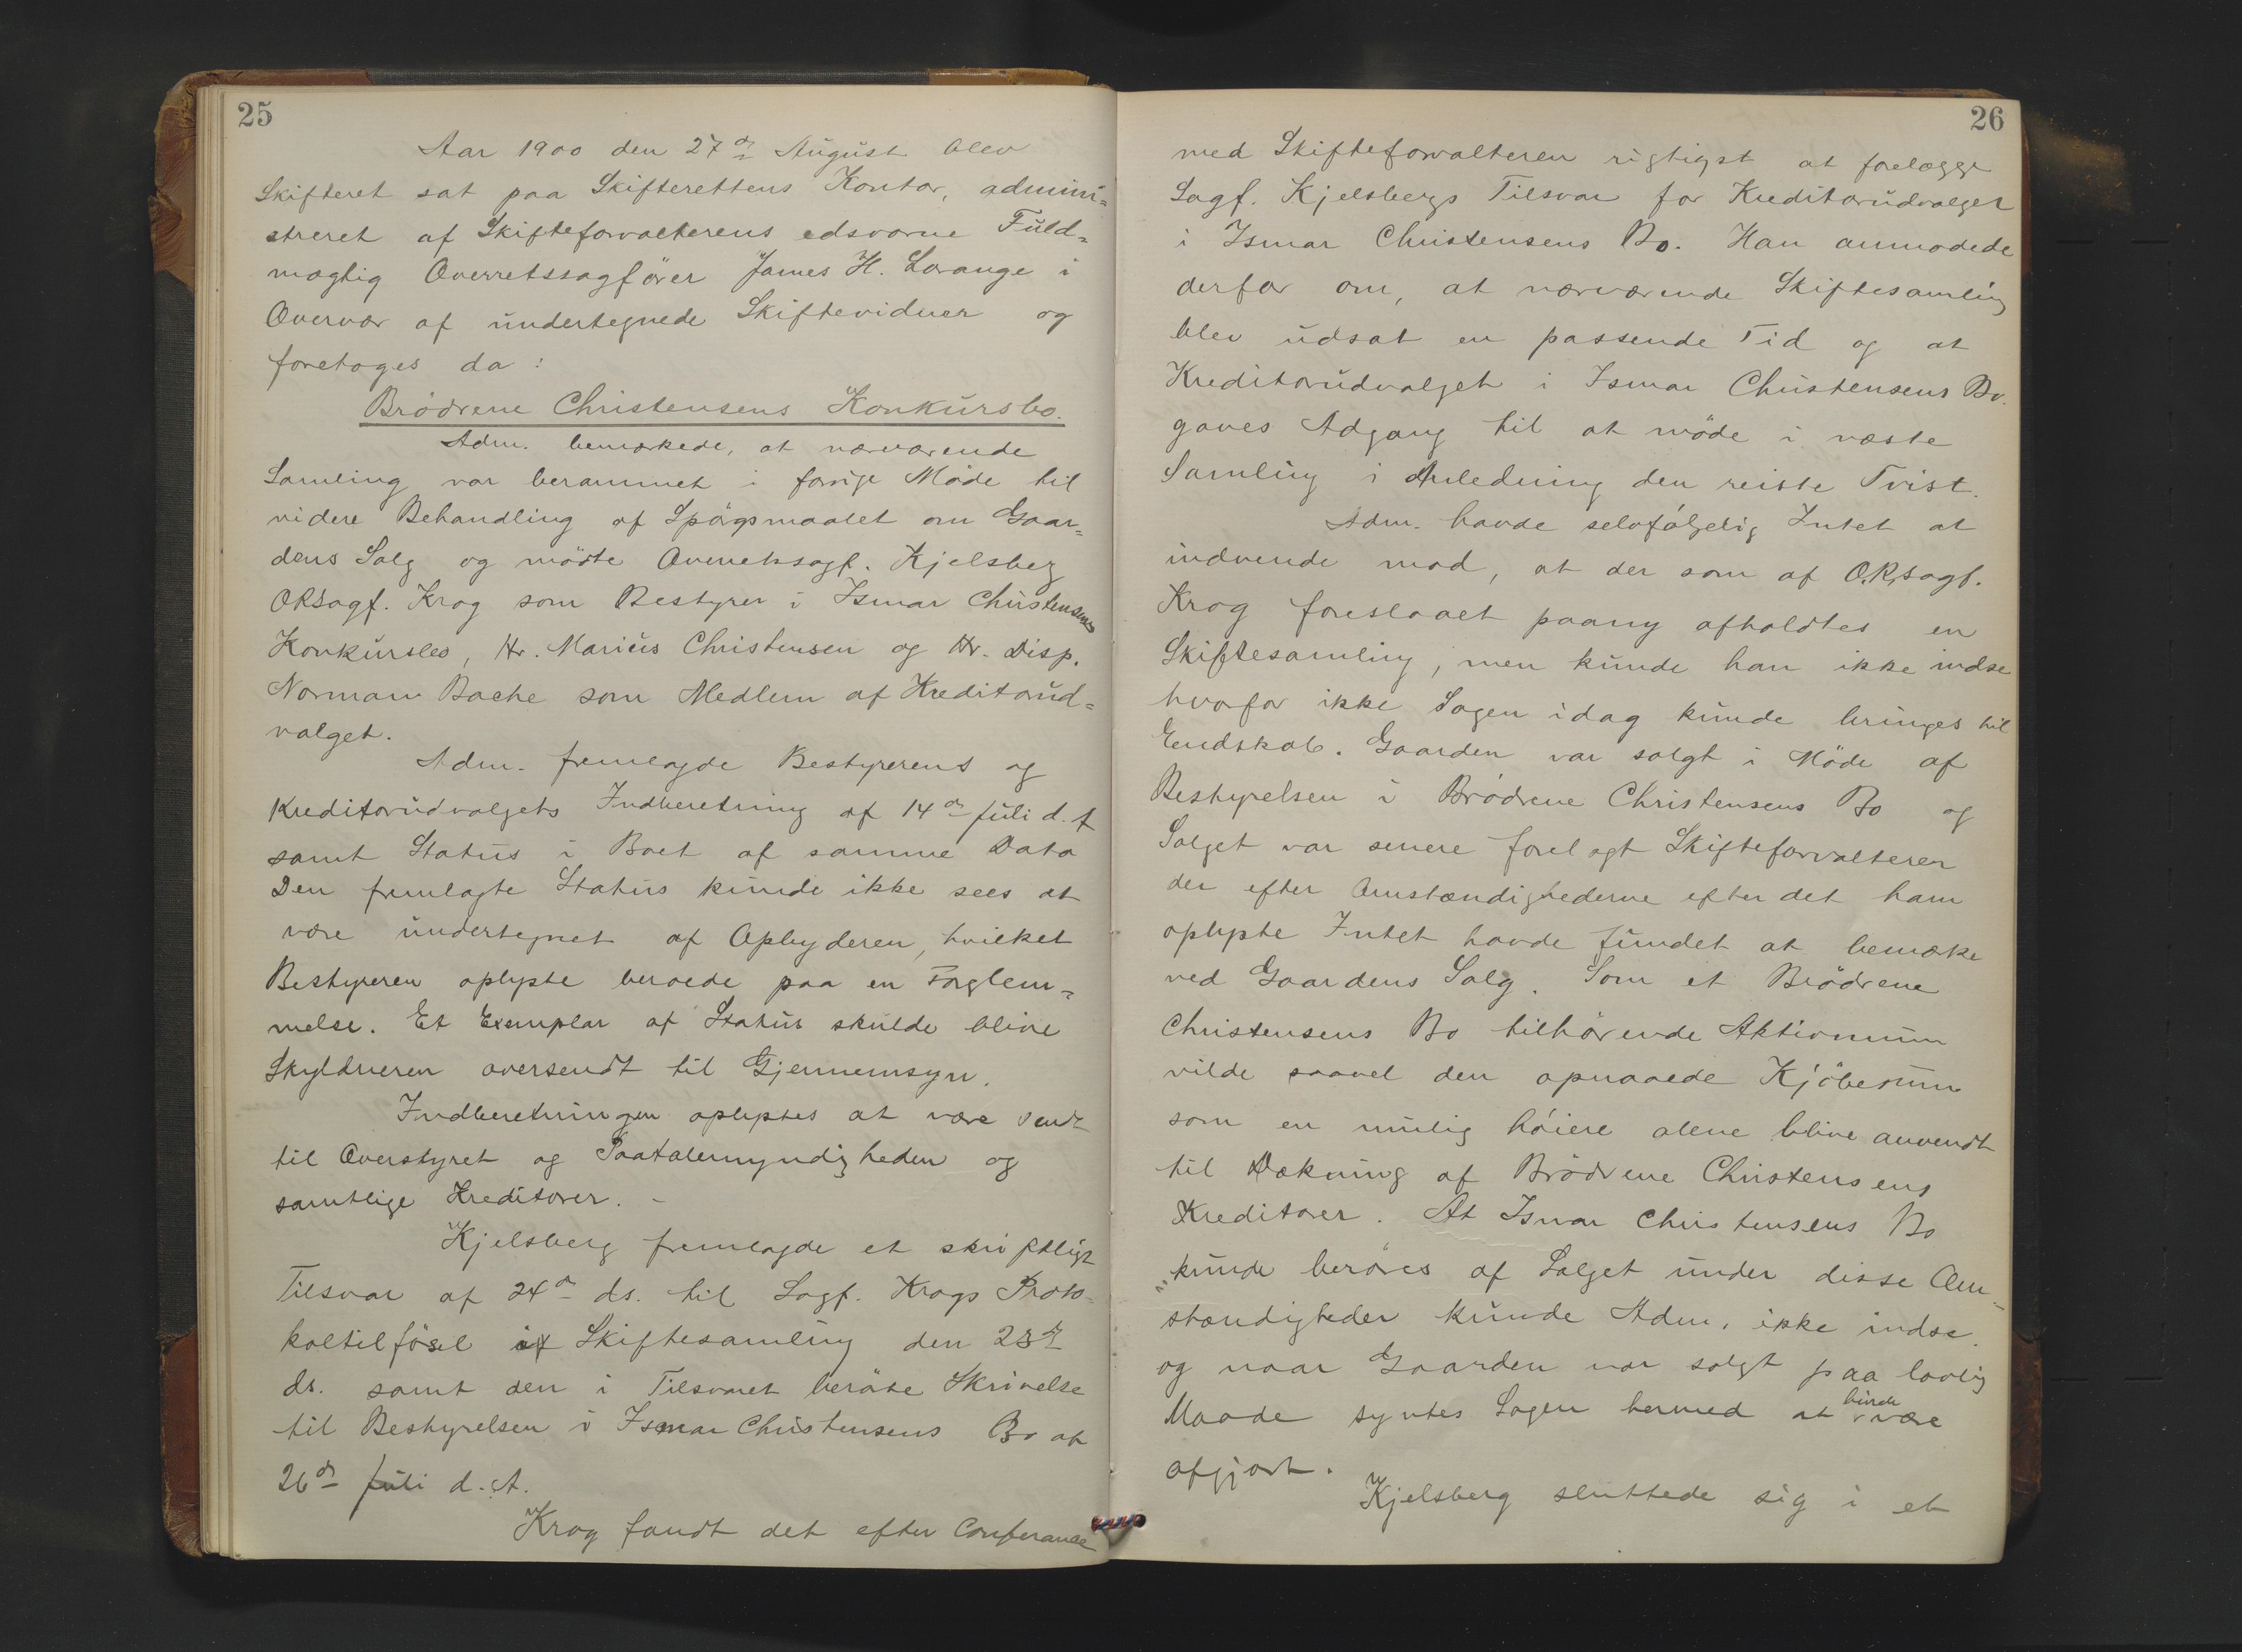 25
Aar 1900 den 27de August blev
Skifteret sat paa Skifterettens Kontor, admini=
streret af Skifteforvalterens edsvorne Fuld=
mægtig Overretssagfører James H. Lorange i
Overvær af undertegnede Skiftevidner og
foretoges da:
Brødrene Christensens Konkursbo.
Adm. bemærkede, at nærværende
Samling var berammet i forrige Møde til
videre Behandling af Spørgsmaalet om Gaar=
dens Salg og mødte Overretssagf. Kjelsberg
ORSagf. Krog som Bestyrer i Ismar Christensens
Konkursbo, Hr. Marius Christensen og Hr. Disp.
Norman Bache som Medlem af Kreditorud=
valget.
Adm. fremlagde Bestyrerens og
Kreditorudvalgets Indberetning af 14de Juli d. A
samt Status i Boet af samme Dato
Den fremlagte Status kunde ikke sees at
være undertegnet af Opbyderen, hvilket
Bestyreren oplyste beroede paa en Forglem=
melse. Et Exemplar af Status skulde blive
Skyldneren oversendt til Gjennemsyn.
Indberetningen oplystes at være sendt
til Overstyret og Paatalemyndigheden og
samtlige Kreditorer. –
Kjelsberg fremlagde et skriftligt
Tilsvar af 24de ds. til Sagf. Krogs Proto=
koltilførsel i Skiftesamling den 23de
ds. samt den i Tilsvaret berørte Skrivelse
til Bestyrelsen i Ismar Christensens Bo af
26de Juli d. A.
Krog fandt det efter Conferance
26
med Skifteforvalteren rigtigst at forelægge
Sagf. Kjelsbergs Tilsvar for Kreditorudvalget
i Ismar Christensens Bo. Han anmodede
derfor om, at nærværende Skiftesamling
blev udsat en passende Tid og at
Kreditorudvalget i Ismar Christensens Bo.
gaves Adgang til at møde i næste
Samling i Anledning den reiste Tvist.
Adm. havde selvfølgelig Intet at
indvende mod, at der som af O.R.sagf.
Krog foreslaaet paany afholdtes en
Skiftesamling, men kunde han ikke indse
hvorfor ikke Sagen idag kunde bringes til
Endskab. Gaarden var solgt i Møde af
Bestyrelsen i Brødrene Christensens Bo og
Salget var senere forelagt Skifteforvalteren
der efter Omstændighederne efter det ham
oplyste Intet havde fundet at bemærke
ved Gaardens Salg. Som et Brødrene
Christensens Bo tilhørende Aktivum
vilde saavel den opnaaede Kjøbesum
som en mulig høiere alene blive anvendt
til Dækning af Brødrene Christensens
Kreditorer. At Ismar Christensens Bo
kunde berøres af Salget under disse Om=
stændigheder kunde Adm. ikke indse
og naar Gaarden var solgt paa lovlig
Maade syntes Sagen hermed at burde være
afgjort.
Kjelsberg sluttede sig i et